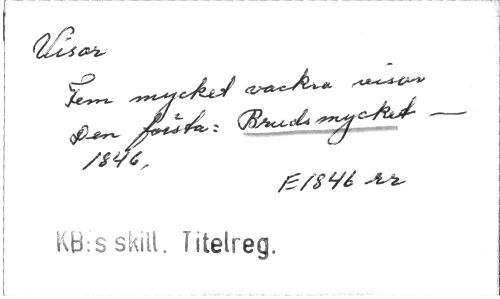 Visor
Fem mycket vackra visor
Den första: Brudsmycket —
1846.
E1846 rr
KB:s skill. Titelreg.